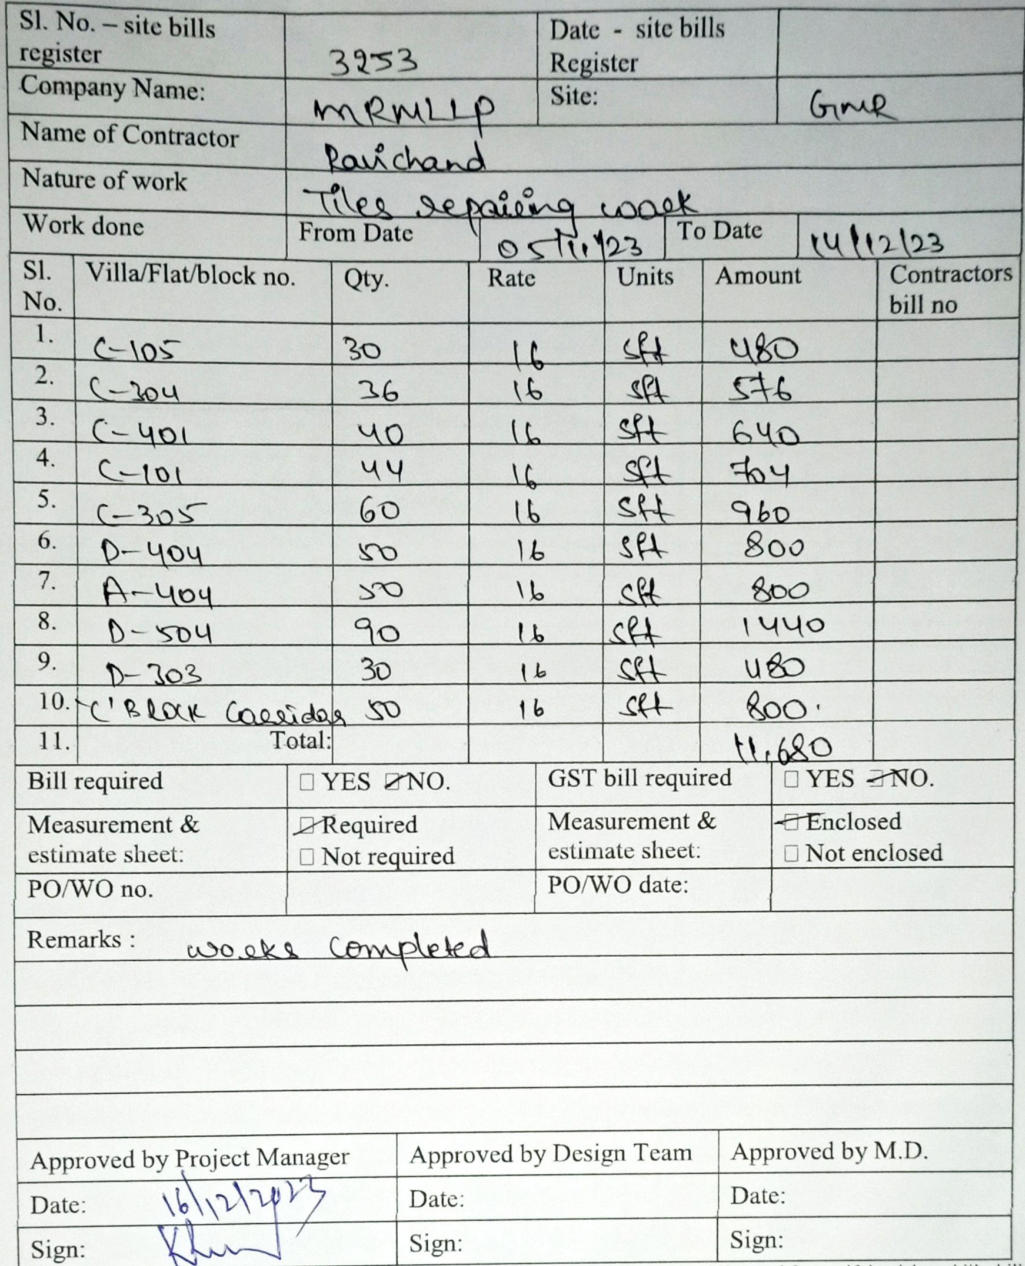 Sl. No. – site bills register 3253 Date - site bills Register
Company Name: MRMLLP Site: GMR
Name of Contractor Ravichand
Nature of work Tiles repairing work
Work done From Date 05/11/23 To Date 14/12/23
Sl. No. Villa/Flat/block no. Qty. Rate Units Amount Contractors bill no
1. C-105 30 16 sft 480
2. C-304 36 16 sft 576
3. C-401 40 16 sft 640
4. C-101 44 16 sft 704
5. C-305 60 16 sft 960
6. D-404 50 16 sft 800
7. A-404 50 16 sft 800
8. D-504 90 16 sft 1440
9. D-303 30 16 sft 480
10. 'C' BLOCK Corridor 50 16 sft 800.
11. Total: 11,680
Bill required □ YES ☑ NO. GST bill required □ YES ☑ NO.
Measurement & estimate sheet: ☑ Required Measurement & estimate sheet: ☑ Enclosed
□ Not required □ Not enclosed
PO/WO no. PO/WO date:
Remarks : works Completed
Approved by Project Manager Approved by Design Team Approved by M.D.
Date: 16/12/2023 Date: Date:
Sign: Sign: Sign: